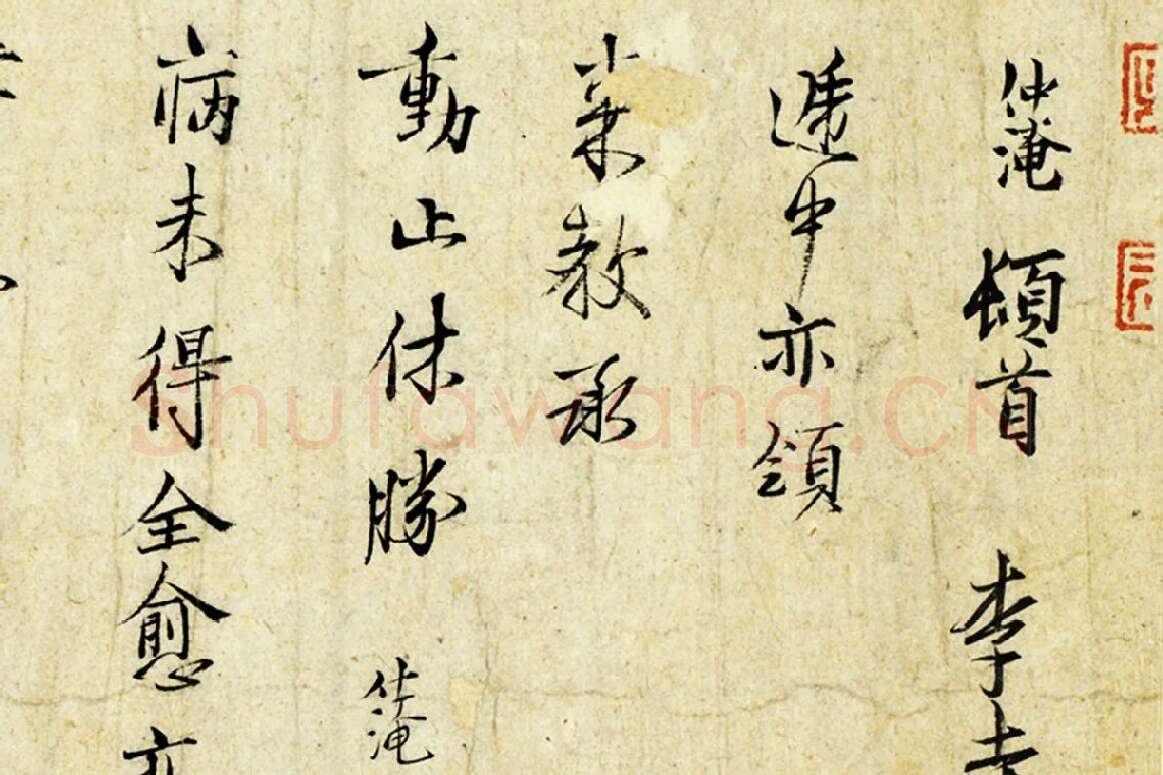 仲淹頓首 李
遞中亦領
來教承
動止休勝 仲淹
病未得全愈亦
shufawang.CN